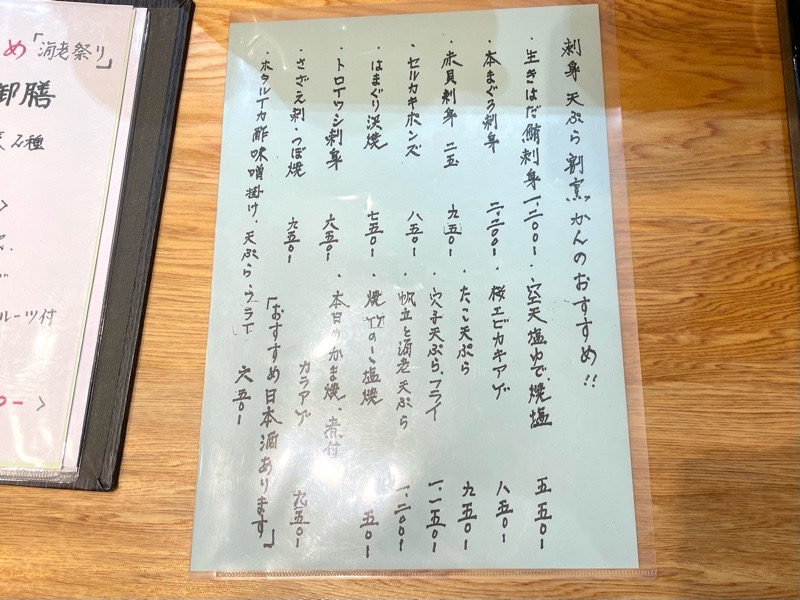 刺身 天ぷら 割烹 かんのおすすめ!!
・生きはだ鮪刺身 一、二〇〇ー
・本まぐろ刺身 二、二〇〇ー
・赤貝刺身 九五〇ー
・セルカキポンズ 八五〇ー
・はまぐり浜焼 七五〇ー
・トロイワシ刺身 六五〇ー
・さざえ刺・つぼ焼 九五〇ー
・ホタルイカ酢味噌掛け、天ぷら、フライ 六五〇ー
・空天塩ゆで、焼塩 五五〇ー
・桜エビカキアゲ 八五〇ー
・たこ天ぷら 九五〇ー
・穴子天ぷら、フライ 一、一五〇ー
・帆立と海老天ぷら 一、二〇〇ー
・焼竹のこ塩焼 五〇ー
・本日のかま焼、煮付
カラアゲ 九五〇ー
「おすすめ日本酒あります」
め「海老祭り」
御膳
2種
ルーツ付